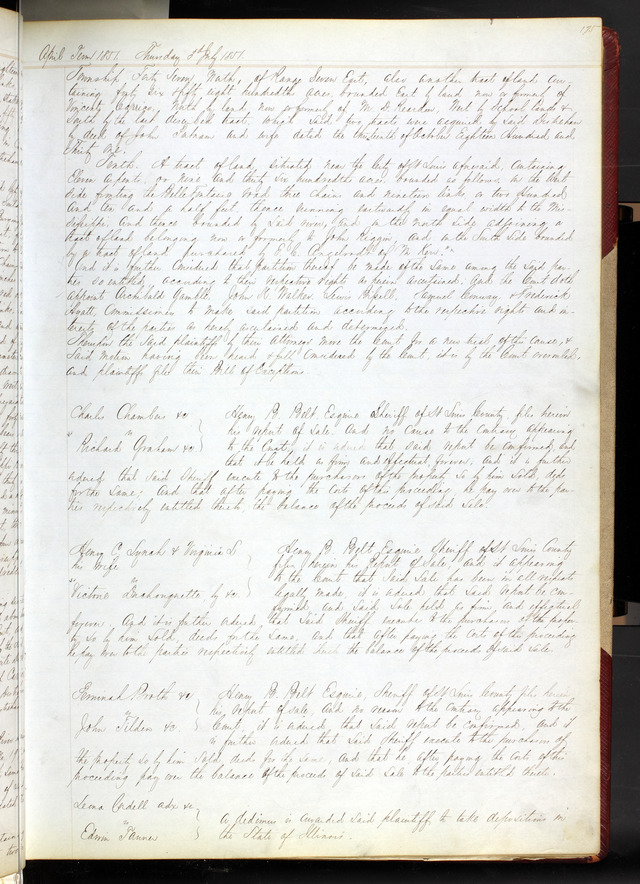 175
April Term 1851. Thursday 3d July 1851
Township Forty Seven, North, of Range Seven East, also another tract of land con-
taining forty six & fifty eight hundredths acres, bounded East by land now or formerly of
Vincent Carrico, North by land now or formerly of M. D. Reardon, West by School lands &
South by the last described tract, which said two parcels were acquired by said
by deed of John Putnam and wife dated the thirteenth of October Eighteen Hundred and
Thirty One.
Tenth. A tract of land, situated near the City of St Louis aforesaid, containing
Eleven arpents, or nine and thirty six hundredths acres bounded as follows, on the West
side fronting the Bellefontaine road three chains and nineteen links or two hundred
and ten and a half feet thence running eastwardly in equal width to the Mis-
sissippi, and thence bounded by said river, and on the north side adjoining a
tract of land belonging now or formerly to John Riggin, and on the South side bounded
by a tract of land purchased by P. E. of M. Kerr."
And it is further Considered that partition thereof be made of the same among the said par-
ties so entitled, according to their respective rights as herein ascertained. And the Court doth
appoint Archibald Gamble, John H. Walker, Lewis Bissell, Conway, & Frederick
Hyatt, Commissioners to make said partition according to the respective rights and in-
terests of the parties as herein ascertained and determined.
Whereupon the said plaintiffs by their Attorneys move the Court for a new trial of this cause, &
said motion having been heard & fully considered by the Court it is by the Court overruled,
and plaintiff files their Bill of Exceptions.
Charles Chambers &c
vs
Richard Graham &c
Henry B. Belt Esquire Sheriff of St Louis County, files herein
his report of Sale. And no cause to the contrary appearing
to the Court, it is ordered that said report be confirmed, and
that it be held as firm and effectual, forever, And it is further
ordered that said Sheriff execute to the purchasers of the property so by him sold, deeds
for the same; And that after paying the Costs of this proceeding, he pay over to the par-
ties respectively entitled thereto, the balance of the proceeds of said Sale.
Henry C. Lynch & Virginia L
his wife
vs
Victoire Duchouquette &c
Henry B. Belt Esquire Sheriff of St Louis County
files herein his report of Sale, and it appearing
to the Court that said Sale has been in all respects
legally made, it is ordered that said report be con-
firmed, and said Sale held as firm, and effectual
forever. And it is further ordered, that said Sheriff execute to the purchasers of the prop-
erty so by him sold, deeds for the same, and that after paying the costs of this proceeding
he pay over to the parties respectively entitled thereto the balance of the proceeds of said Sale.
Proth &c
vs
John Tilden &c.
Henry B. Belt Esquire, Sheriff of St Louis County files herein
his report of sale, And no reason to the Contrary appearing to the
Court, it is ordered, that said report be confirmed, And it
is further ordered that said Sheriff execute to the purchasers of
the property so by him sold, deeds for the same, And that he after paying the costs of this
proceeding pay over the balance of the proceeds of said Sale to the parties entitled thereto.
Cordell adx &c
vs
Edwin Tanner
A dedimus is awarded said plaintiff to take depositions in
the State of Illinois.